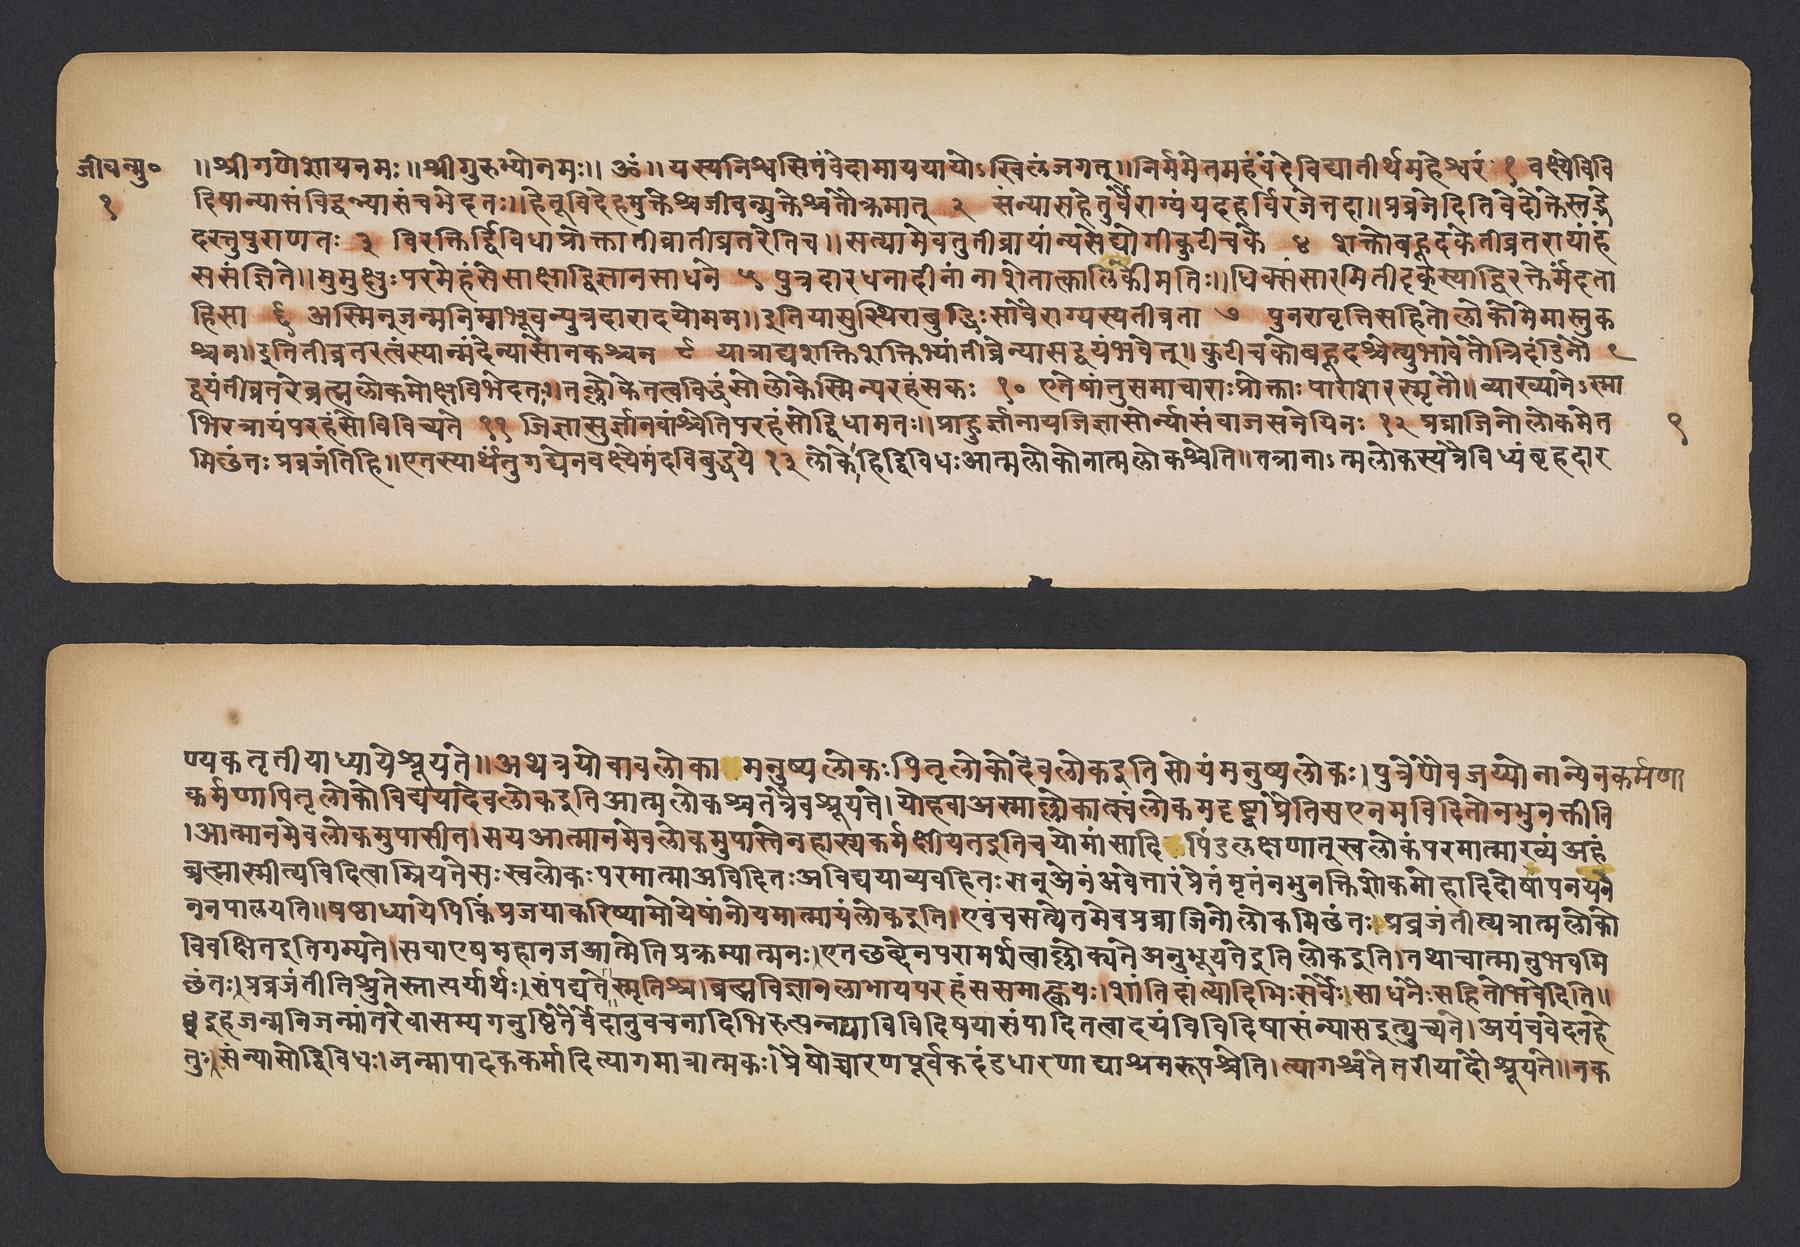 जीवन्मु॰ ॥श्रीगणेशायनमः॥श्रीगुरुभ्योनमः॥ ॐ॥ यस्यनिश्वसितंवेदामाययायोऽखिलंजगत्॥निर्ममेतमहंवंदेविद्यातीर्थमहेश्वरं १ वक्ष्येविवि
१ दिषान्यासंविद्वन्न्यासंचभेदतः॥हेतूविदेहमुक्तेश्चजीवन्मुक्तेश्चतौक्रमात् २ संन्यासहेतुर्वैराग्यंयदहर्विरजेत्तदा॥प्रव्रजेदितिवेदोक्तेस्तद्भे
दस्तुपुराणतः ३ विरक्तिर्द्विविधाप्रोक्तातीव्रातीव्रतरेतिच॥सत्यामेवतुतीव्रायांन्यसेद्योगीकुटीचके ४ शक्तोबहूदकेतीव्रतरायांहं
ससंज्ञिते॥मुमुक्षुःपरमेहंसेसाक्षाद्विज्ञानसाधने ५ पुत्रदारधनादीनांनाशेतात्कालिकीमतिः॥धिक्संसारमितीदृक्स्याद्विरक्तेर्मंदता
हिसा ६ अस्मिनुजन्मनिमाभूवन्पुत्रदारादयोमम॥इतियासुस्थिराबुद्धिःसावैराग्यस्यतीव्रता ७ पुनरावृत्तिसहितोलोकोमेमास्तुक
श्चन॥इतितीव्रतरत्वंस्यान्मंदेन्यासोनकश्चन ८ यात्राद्यशक्तिशक्तिभ्यांतीव्रेन्यासद्वयंभवेत्॥कुटीचकोबहूदश्चेत्युभावेतौत्रिदंडिनौ ९
द्वयंतीव्रतरेब्रह्मलोकमोक्षविभेदतः॥तल्लोकेतत्त्वविद्धंसोलोकेस्मिन्परहंसकः १० एतेषांतुसमाचाराःप्रोक्ताःपाराशरस्मृतौ॥व्याख्यानेऽस्मा
भिरत्रायंपरहंसोविविच्यते ११ जिज्ञासुर्ज्ञानवांश्चेतिपरहंसोद्विधामतः॥प्राहुर्ज्ञानायजिज्ञासोर्न्यासंवाजसनेयिनः १२ प्रव्राजिनोलोकमेत १
मिछंतः प्रव्रजंतिहि॥एतस्यार्थंतुगद्येनवक्ष्येमंदविबुद्धये १३ लोकोहिद्विविधःआत्मलोकोनात्मलोकश्चेति॥तत्रानाऽत्मलोकस्यत्रैविध्यंबृहदार
ण्यकतृतीयाध्यायेश्रूयते॥अथत्रयोवावलोका मनुष्यलोकःपितृलोकोदेवलोकइतिसोयंमनुष्यलोकः।पुत्रेणैवजय्योनान्येनकर्मणा
कर्मणापितृलोकोविद्ययादेवलोकइतिआत्मलोकश्चतत्रैवश्रूयते।योहवाअस्माल्लोकात्स्वंलोकमदृष्ट्वाप्रैतिसएनमविदितोनभुनक्तीति
।आत्मानमेवलोकमुपासीत।सयआत्मानमेवलोकमुपास्तेनहास्यकर्मक्षीयतइतिचयोमांसादि पिंडलक्षणात्स्वलोकंपरमात्माख्यंअहं
ब्रह्मास्मीत्यविदित्वाम्रियतेसःस्वलोकःपरमात्माअविदितःअविद्ययाव्यवहितःसन्अेनंअवेत्तारंप्रेतंमृतंनभुनक्तिशोकमोहादिदोषापनयने
ननपालयति॥षष्ठाध्यायेपिकिंप्रजयाकरिष्यामोयेषांनोयमात्मायंलोकइति।एवंचसत्येतमेवप्रव्राजिनोलोकमिछंतः प्रव्रजंतीत्यत्रात्मलोको
विवक्षितइतिगम्यते।सवाएषमहानजआत्मेतिप्रक्रम्यात्मनः।एतछब्देनपरामर्शत्वाल्लोक्यतेअनुभूयतेइतिलोकइति।तथाचात्मानुभवमि
छंतः।प्रव्रजंतीतिश्रुतेस्तात्पर्यार्थः।संपद्यतेस्मृतिश्च।ब्रह्मविज्ञानलाभायपरहंससमाह्वयः।शांतिदांत्यादिभिःसर्वैः।साधनैःसहितोभवेदिति॥
इहजन्मनिजन्मांतरेवासम्यगनुष्ठितैर्वेदानुवचनादिभिरुत्पन्नयाविविदिषयासंपादितत्वादयंविविदिषासंन्यासइत्युच्यते।अयंचवेदनहे
तुः।संन्यासोद्विविधः।जन्मापादककर्मादित्यागमात्रात्मकः।प्रैषोच्चारणपूर्वकदंडधारणाद्याश्रमरूपश्चेति।त्यागश्चतैत्तरीयादौश्रूयते॥नक